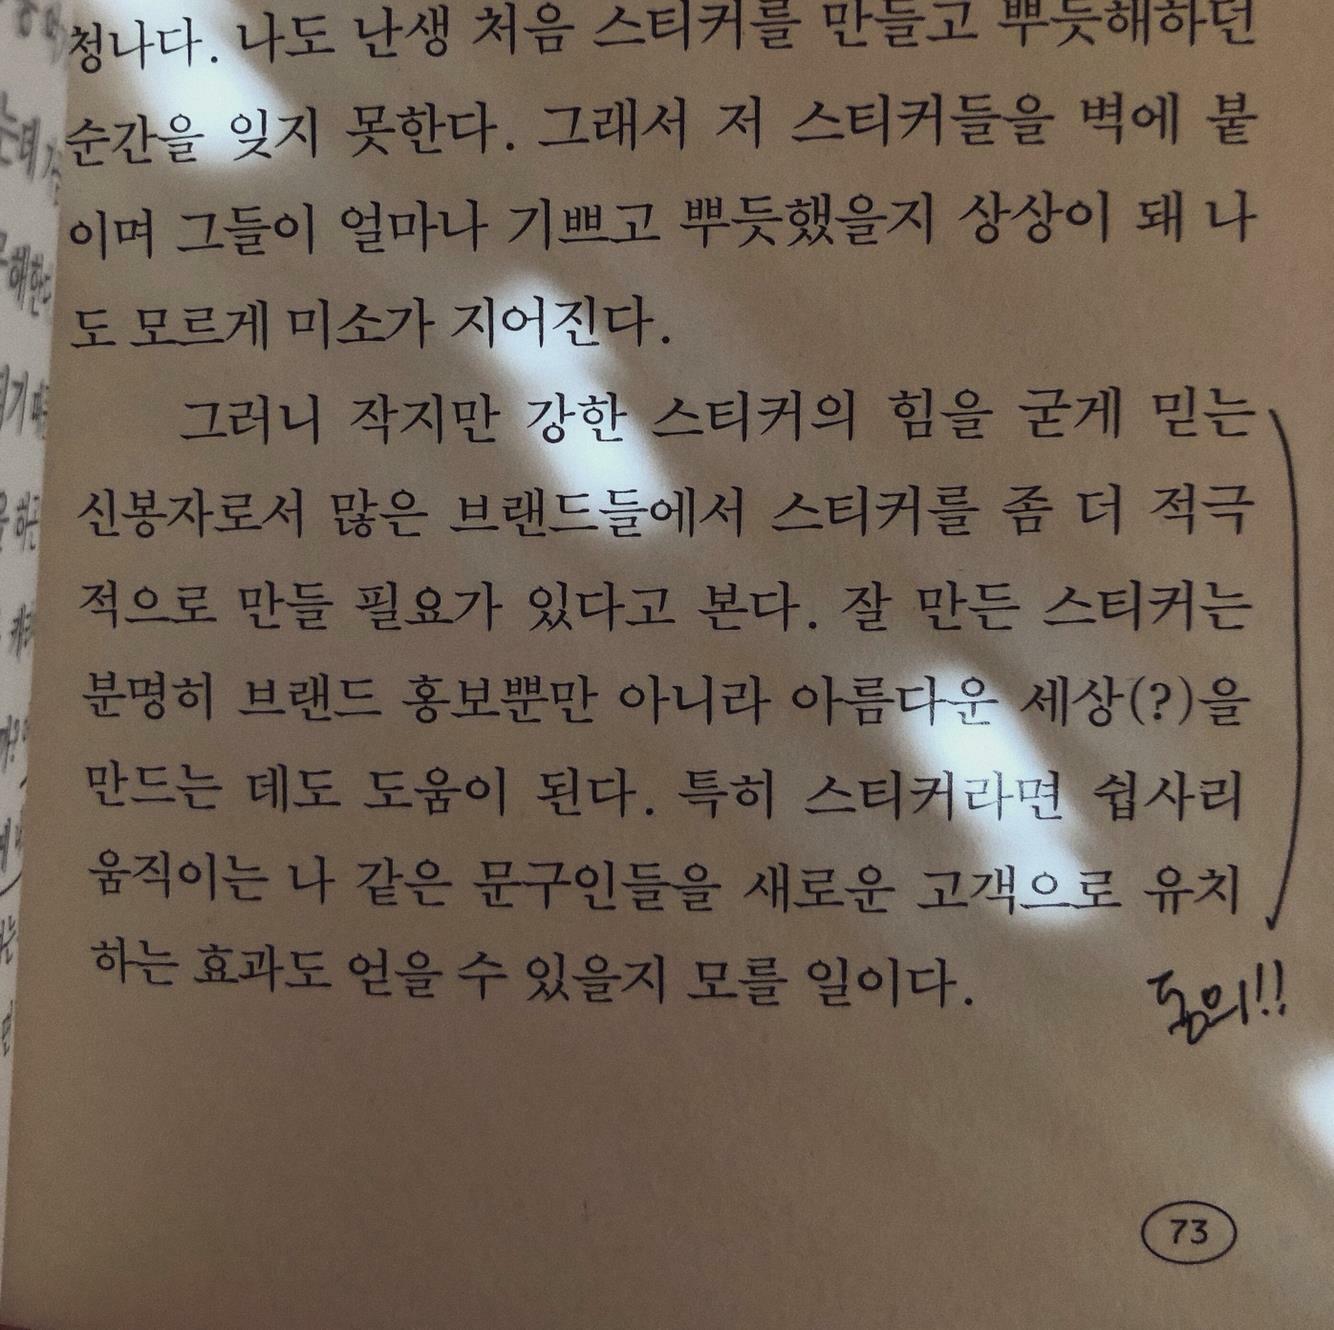 청나다. 나도 난생 처음 스티커를 만들고 뿌듯해하던
순간을 잊지 못한다. 그래서 저 스티커들을 벽에 붙
이며 그들이 얼마나 기쁘고 뿌듯했을지 상상이 돼 나
도 모르게 미소가 지어진다.
그러니 작지만 강한 스티커의 힘을 굳게 믿는
신봉자로서 많은 브랜드들에서 스티커를 좀 더 적극
적으로 만들 필요가 있다고 본다. 잘 만든 스티커는
분명히 브랜드 홍보뿐만 아니라 아름다운 세상(?)을
만드는 데도 도움이 된다. 특히 스티커라면 쉽사리
움직이는 나 같은 문구인들을 새로운 고객으로 유치
하는 효과도 얻을 수 있을지 모를 일이다.
동의!!
73